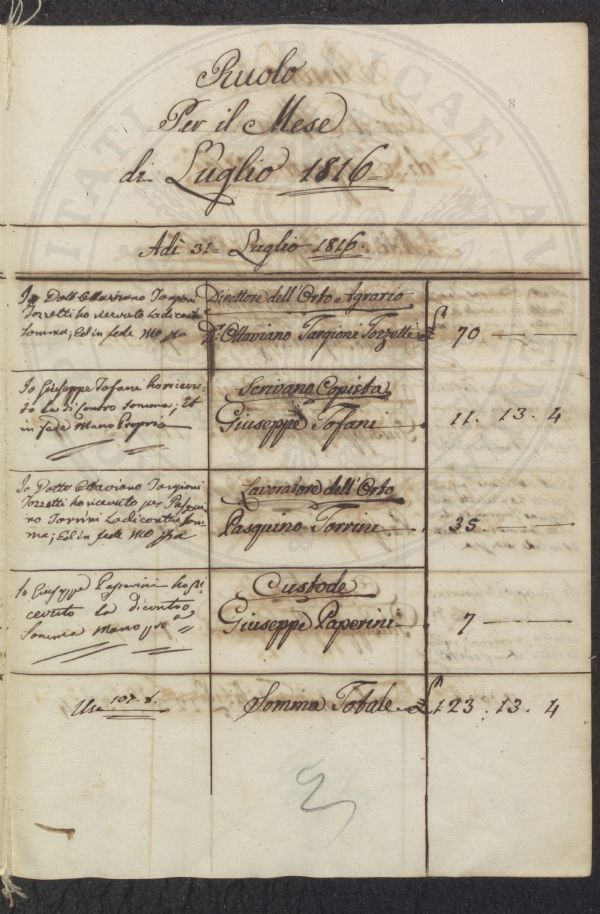 8
Ruolo
Per il Mese
di Luglio 1816
Adì 31 = Luglio 1816.
Io Dott Ottaviano Targioni
Tozzetti ho ricevuto la di contro
Somma; Ed in fede Mo ppa
Direttore dell'Orto Agrario
D.r Ottaviano Targioni Tozzetti £ 70 — —
Io Giuseppe Tofani ho ricevu-
to la di Contro Somma; Et
in fede Mano Propria
Scrivano Copista
Giuseppe Tofani . 11. 13. 4
Io Dotto Ottaviano Targioni
Tozzetti ho ricevuto per Pasqui
no Torrini la di contro Som-
ma; Ed in fede Mo ppa
Lavoratore dell'Orto
Pasquino Torrini . 35. — —
Io Giuseppe Paperini ho ri
cevuto la di contro
Somma Mano pro a
Custode
Giuseppe Paperini . 7 — —
Somma Totale £ 123. 13. 4